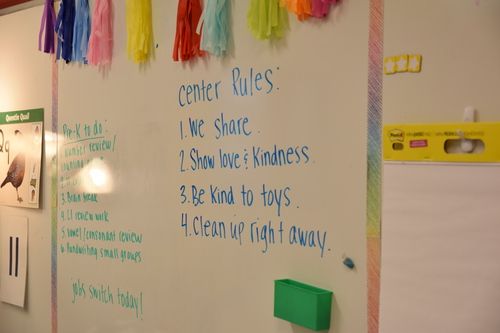 Center Rules:
1. We share.
2. Show love & Kindness.
3. Be Kind to toys.
4. Clean up right away.
Pre-K to do:
number review/
3. Brain Break
4. LI review work
5. vowel/consonant review
6. Handwriting small groups
jobs switch today!
Quentin Quail
Post-it